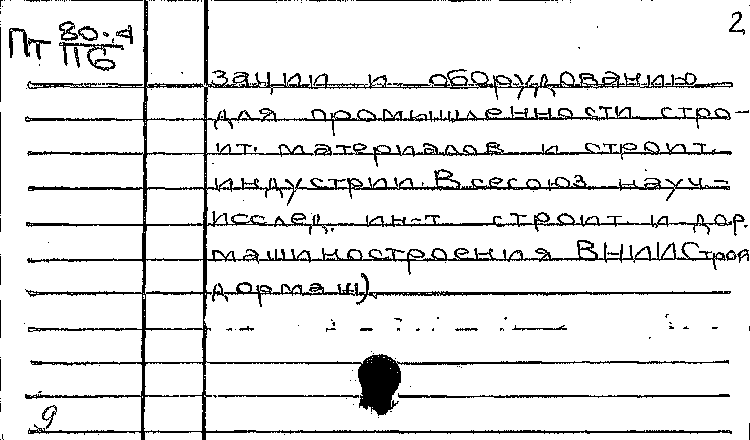 2
Пт 80-4
116
зации и оборудованию
для промышленности стро-
ит. материалов и строит.
индустрии. Всесоюз науч-
исслед. ин-т строит. и дор.
машиностроения ВНИИСтрой
дормаш).
9